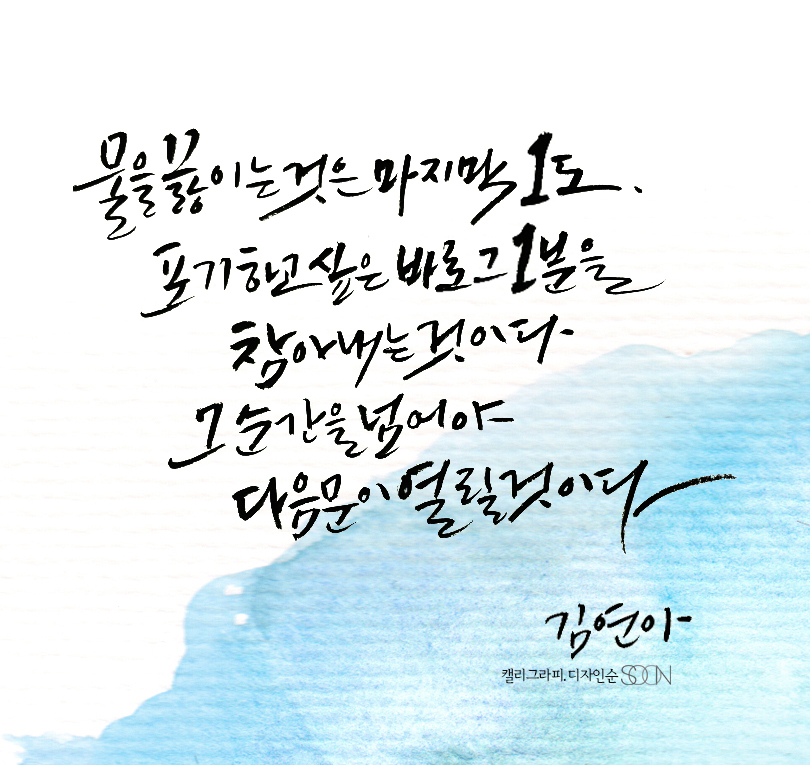 물을 끓이는 것은 마지막 1도.
포기하고 싶은 바로 그 1분을
참아내는 것이다
그 순간을 넘어야
다음 문이 열릴 것이다
김연아
캘리그라피. 디자인순 SOON